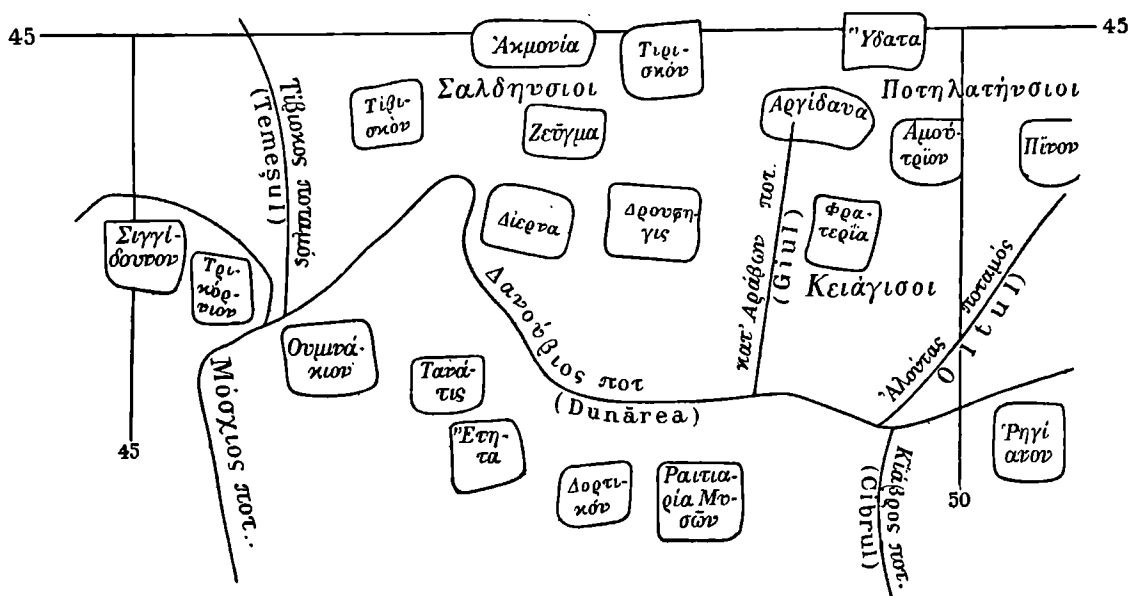 45
45
Ἀκμονία
Τιρι-
σκόν
Ὕδατα
Τίβισκος ποταμός
(Temeşul)
Τίβι-
σκὸν
Σαλδηνσιοι
Ζεῦγμα
Αργίδαυα
Ποτηλατήνσιοι
Αμού-
τρϊον
Πῖνον
Σιγγί-
δουνον
Τρι-
κόρ-
νιον
Δίερνα
Δρουφη-
γις
κατ' Αράβων ποτ.
(Giul)
Φρα-
τερΐα
Κειάγισοι
Δανούβιος ποτ
(Dunărea)
Ἀλούτας ποταμός
Oltul
Ουμινά-
κιον
Τανά-
τις
Ἔτη-
τα
Μόσχιος ποτ...
45
Δορτι-
κόν
Ραιτια-
ρία Μυ-
σῶν
Κίαβρος ποτ.
(Cibrul)
50
Ῥηγί
ανον